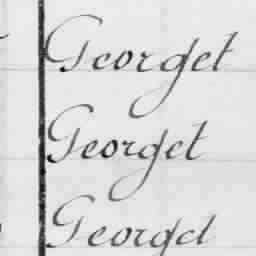 Georget
Georget
Georget